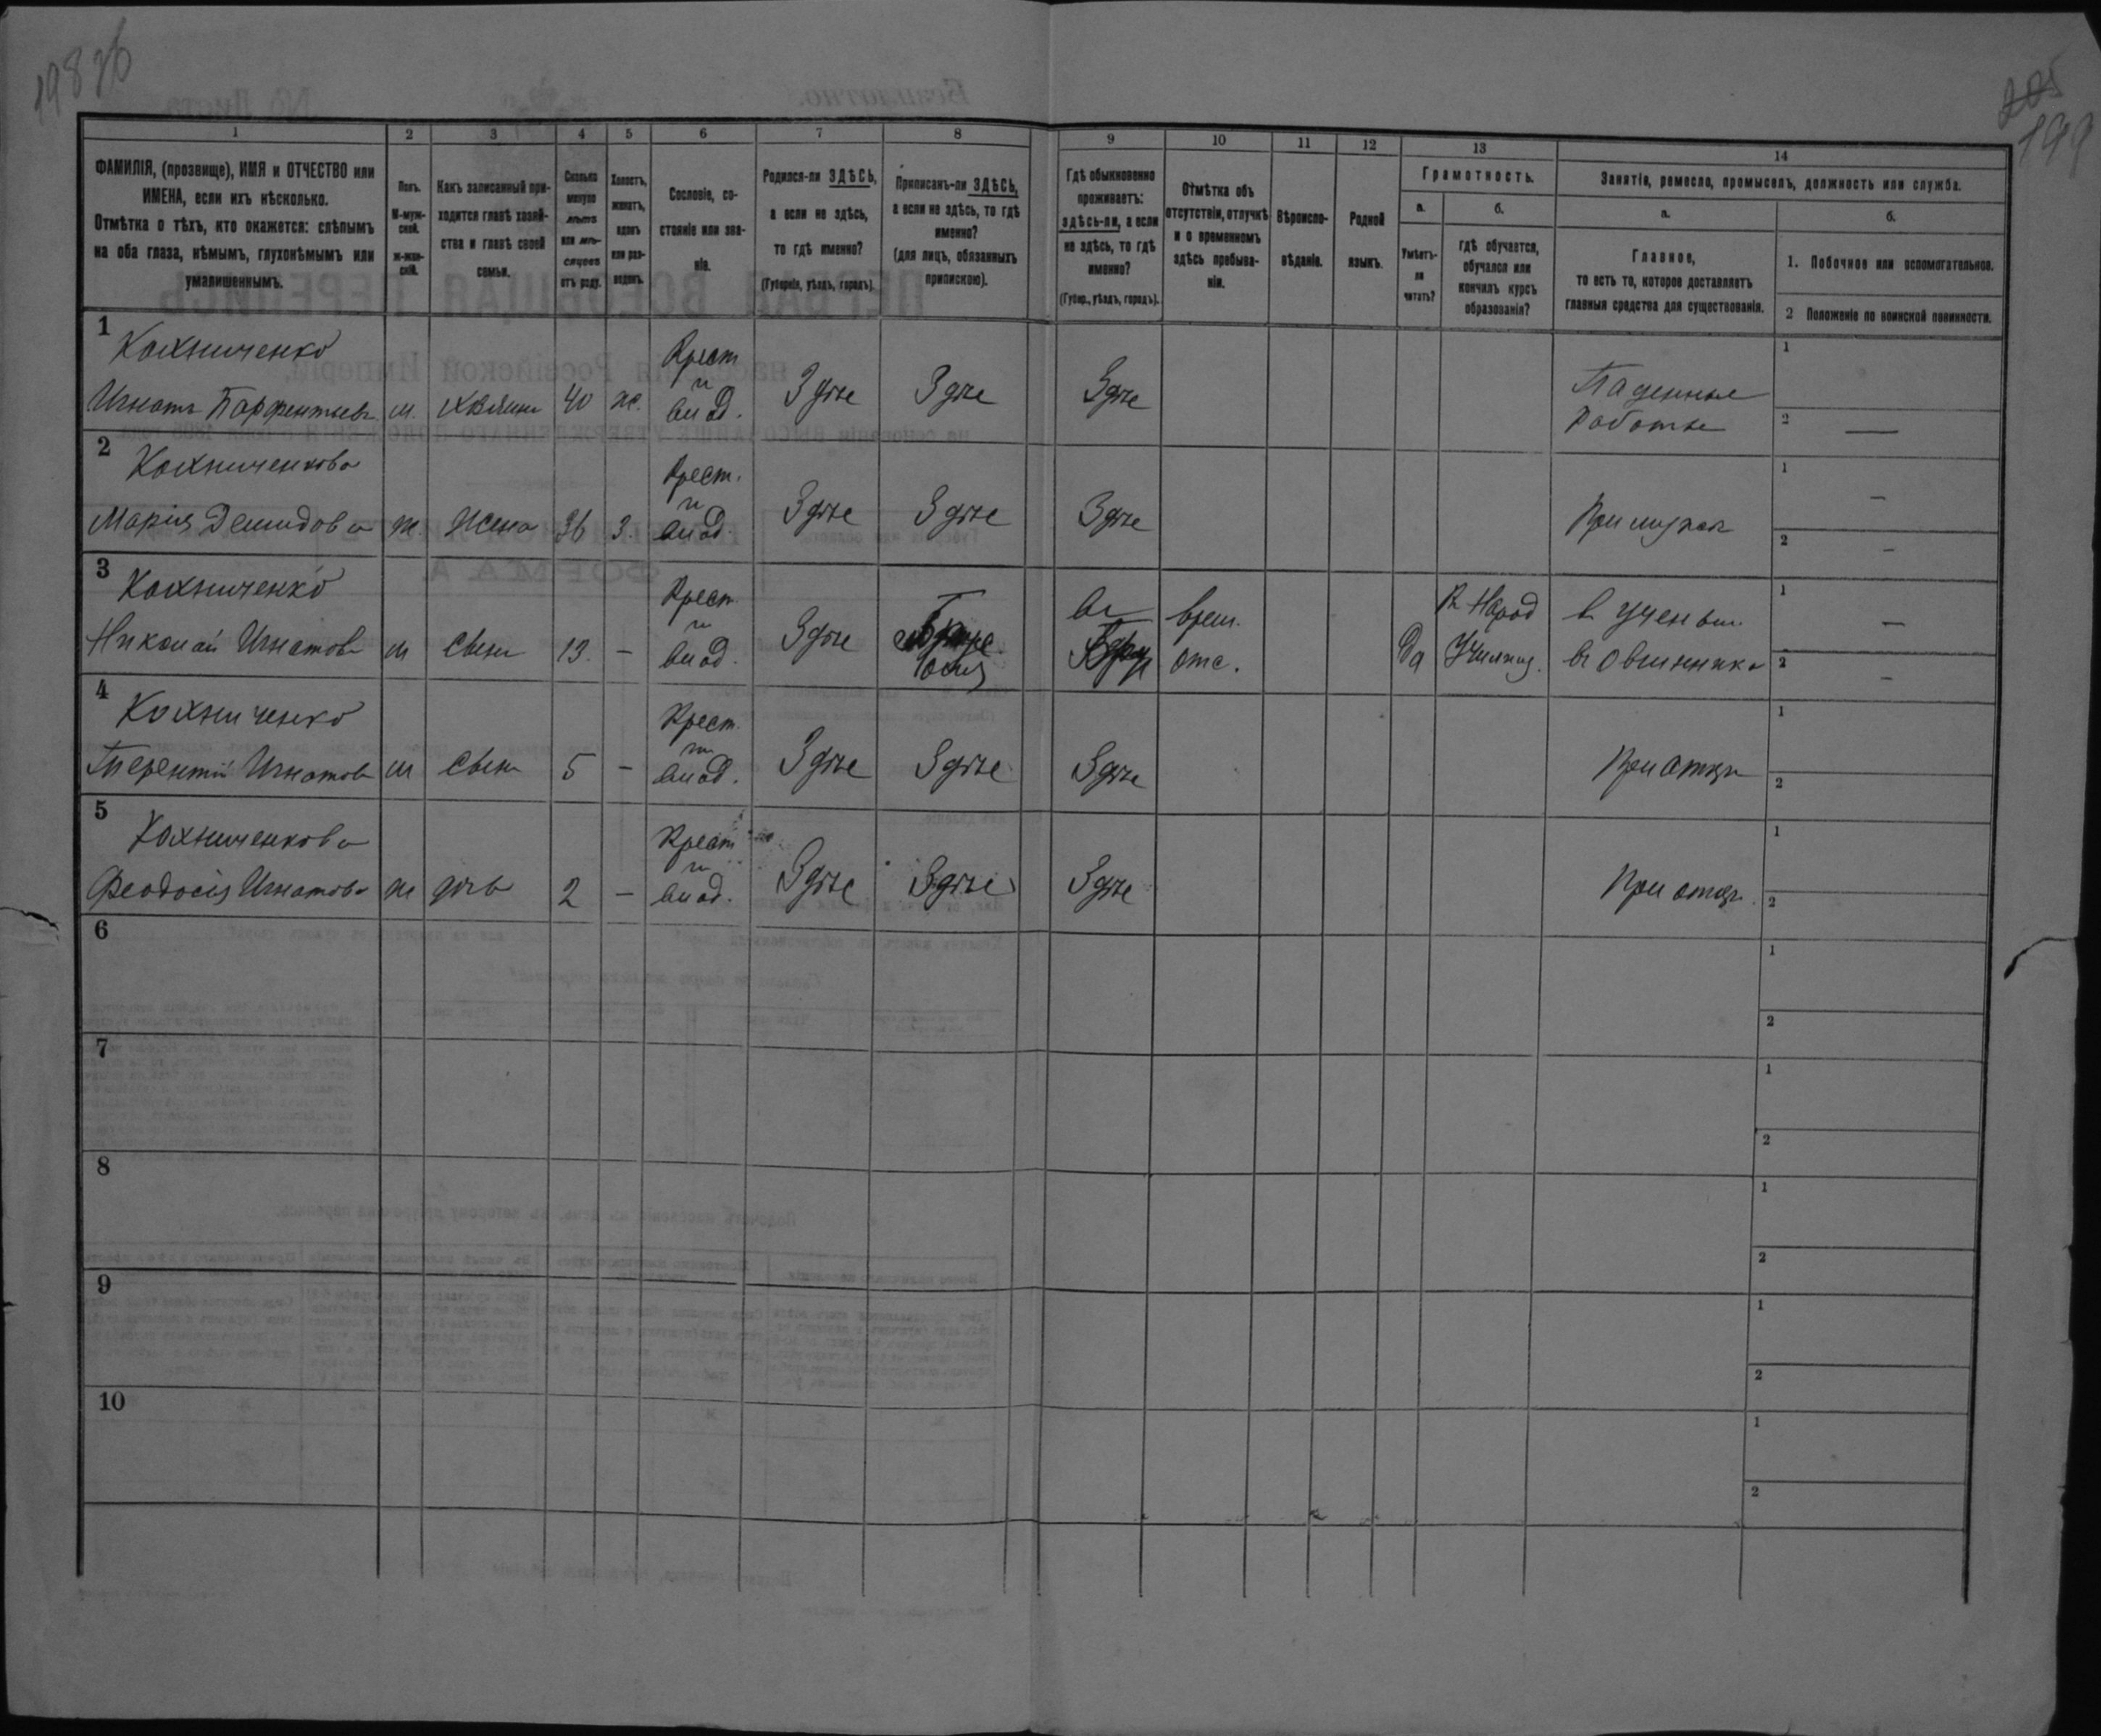 198 об
205
199
1
2
3
4
5
6
7
8
9
10
11
12
13
14
ФАМИЛІЯ, (прозвище), ИМЯ и ОТЧЕСТВО или
ИМЕНА, если ихъ нѣсколько.
Отмѣтка о тѣхъ, кто окажется: слѣпымъ
на оба глаза, нѣмымъ, глухонѣмымъ или
умалишеннымъ.
Полъ.
М-муж-
ской.
Ж-жен-
скій.
Какъ записанный при-
ходится главѣ хозяй-
ства и главѣ своей
семьи.
Сколько
минуло
лѣтъ
или мѣ-
сяцевъ
отъ роду.
Холостъ,
женатъ,
вдовъ
или раз-
веденъ.
Сословіе, со-
стояніе или зва-
ніе.
Родился-ли ЗДѢСЬ,
а если не здѣсь,
то гдѣ именно?
(Губернія, уѣздъ, городъ).
Приписанъ-ли ЗДѢСЬ,
а если не здѣсь, то гдѣ
именно?
(для лицъ, обязанныхъ
припискою).
Гдѣ обыкновенно
проживаетъ:
здѣсь-ли, а если
не здѣсь, то гдѣ
именно?
(Губер., уѣздъ, городъ).
Отмѣтка объ
отсутствіи, отлучкѣ
и о временномъ
здѣсь пребыва-
ніи.
Вѣроиспо-
вѣданіе.
Родной
языкъ.
Грамотность.
а.
Умѣетъ-
ли
читать?
б.
гдѣ обучается,
обучался или
кончилъ курсъ
образованія?
Занятіе, ремесло, промыселъ, должность или служба.
а.
Главное,
то есть то, которое доставляетъ
главныя средства для существованія.
б.
1. Побочное или вспомогательное.
2 Положеніе по воинской повинности.
1
Кахниченко
Игнатъ Парфентьев м. хозяинъ 40 ж. Крест
Здѣсе Здѣсе Здѣсе
Паденные
работы
1
2 —
2
Кахниченкова
Марія Демидова ж. Жена 36 З. Крест.
Здѣсе Здѣсе Здѣсе
При мужѣ
1 —
2 —
3
Кахниченко
Николай Игнатов м Сынъ 13. — Крест
Здѣсе
врем.
отс.
Да
Народ
Училищ.
в ученьи
1 —
2 —
4
Кахниченко
Терентій Игнатов м Сынъ 5 — Крест.
Здѣсе Здѣсе Здѣсе
При отцѣ
1
2
5
Кахниченкова
Феодосія Игнатова ж дочь 2 — Крест
Здѣсе Здѣсе Здѣсе
При отцѣ.
1
2
6
1
2
7
1
2
8
1
2
9
1
2
10
1
2